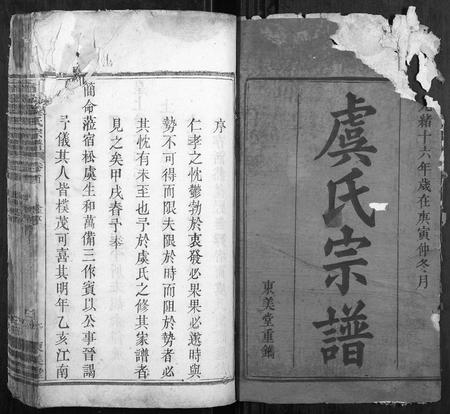 緒十六年歲在庚寅仲冬月
虞氏宗譜
東美堂重鐫
序
仁孝之忱鬱勃於衷發必果果必遂時與
勢不可得而限夫限於時而阻於勢者必
其忱有未至也予於虞氏之修其家譜者
見之矣甲戌春予奉
簡命蒞宿松虞生和萬備三作賓以公事晉謁
予儀其人皆樸茂可喜其明年乙亥江南